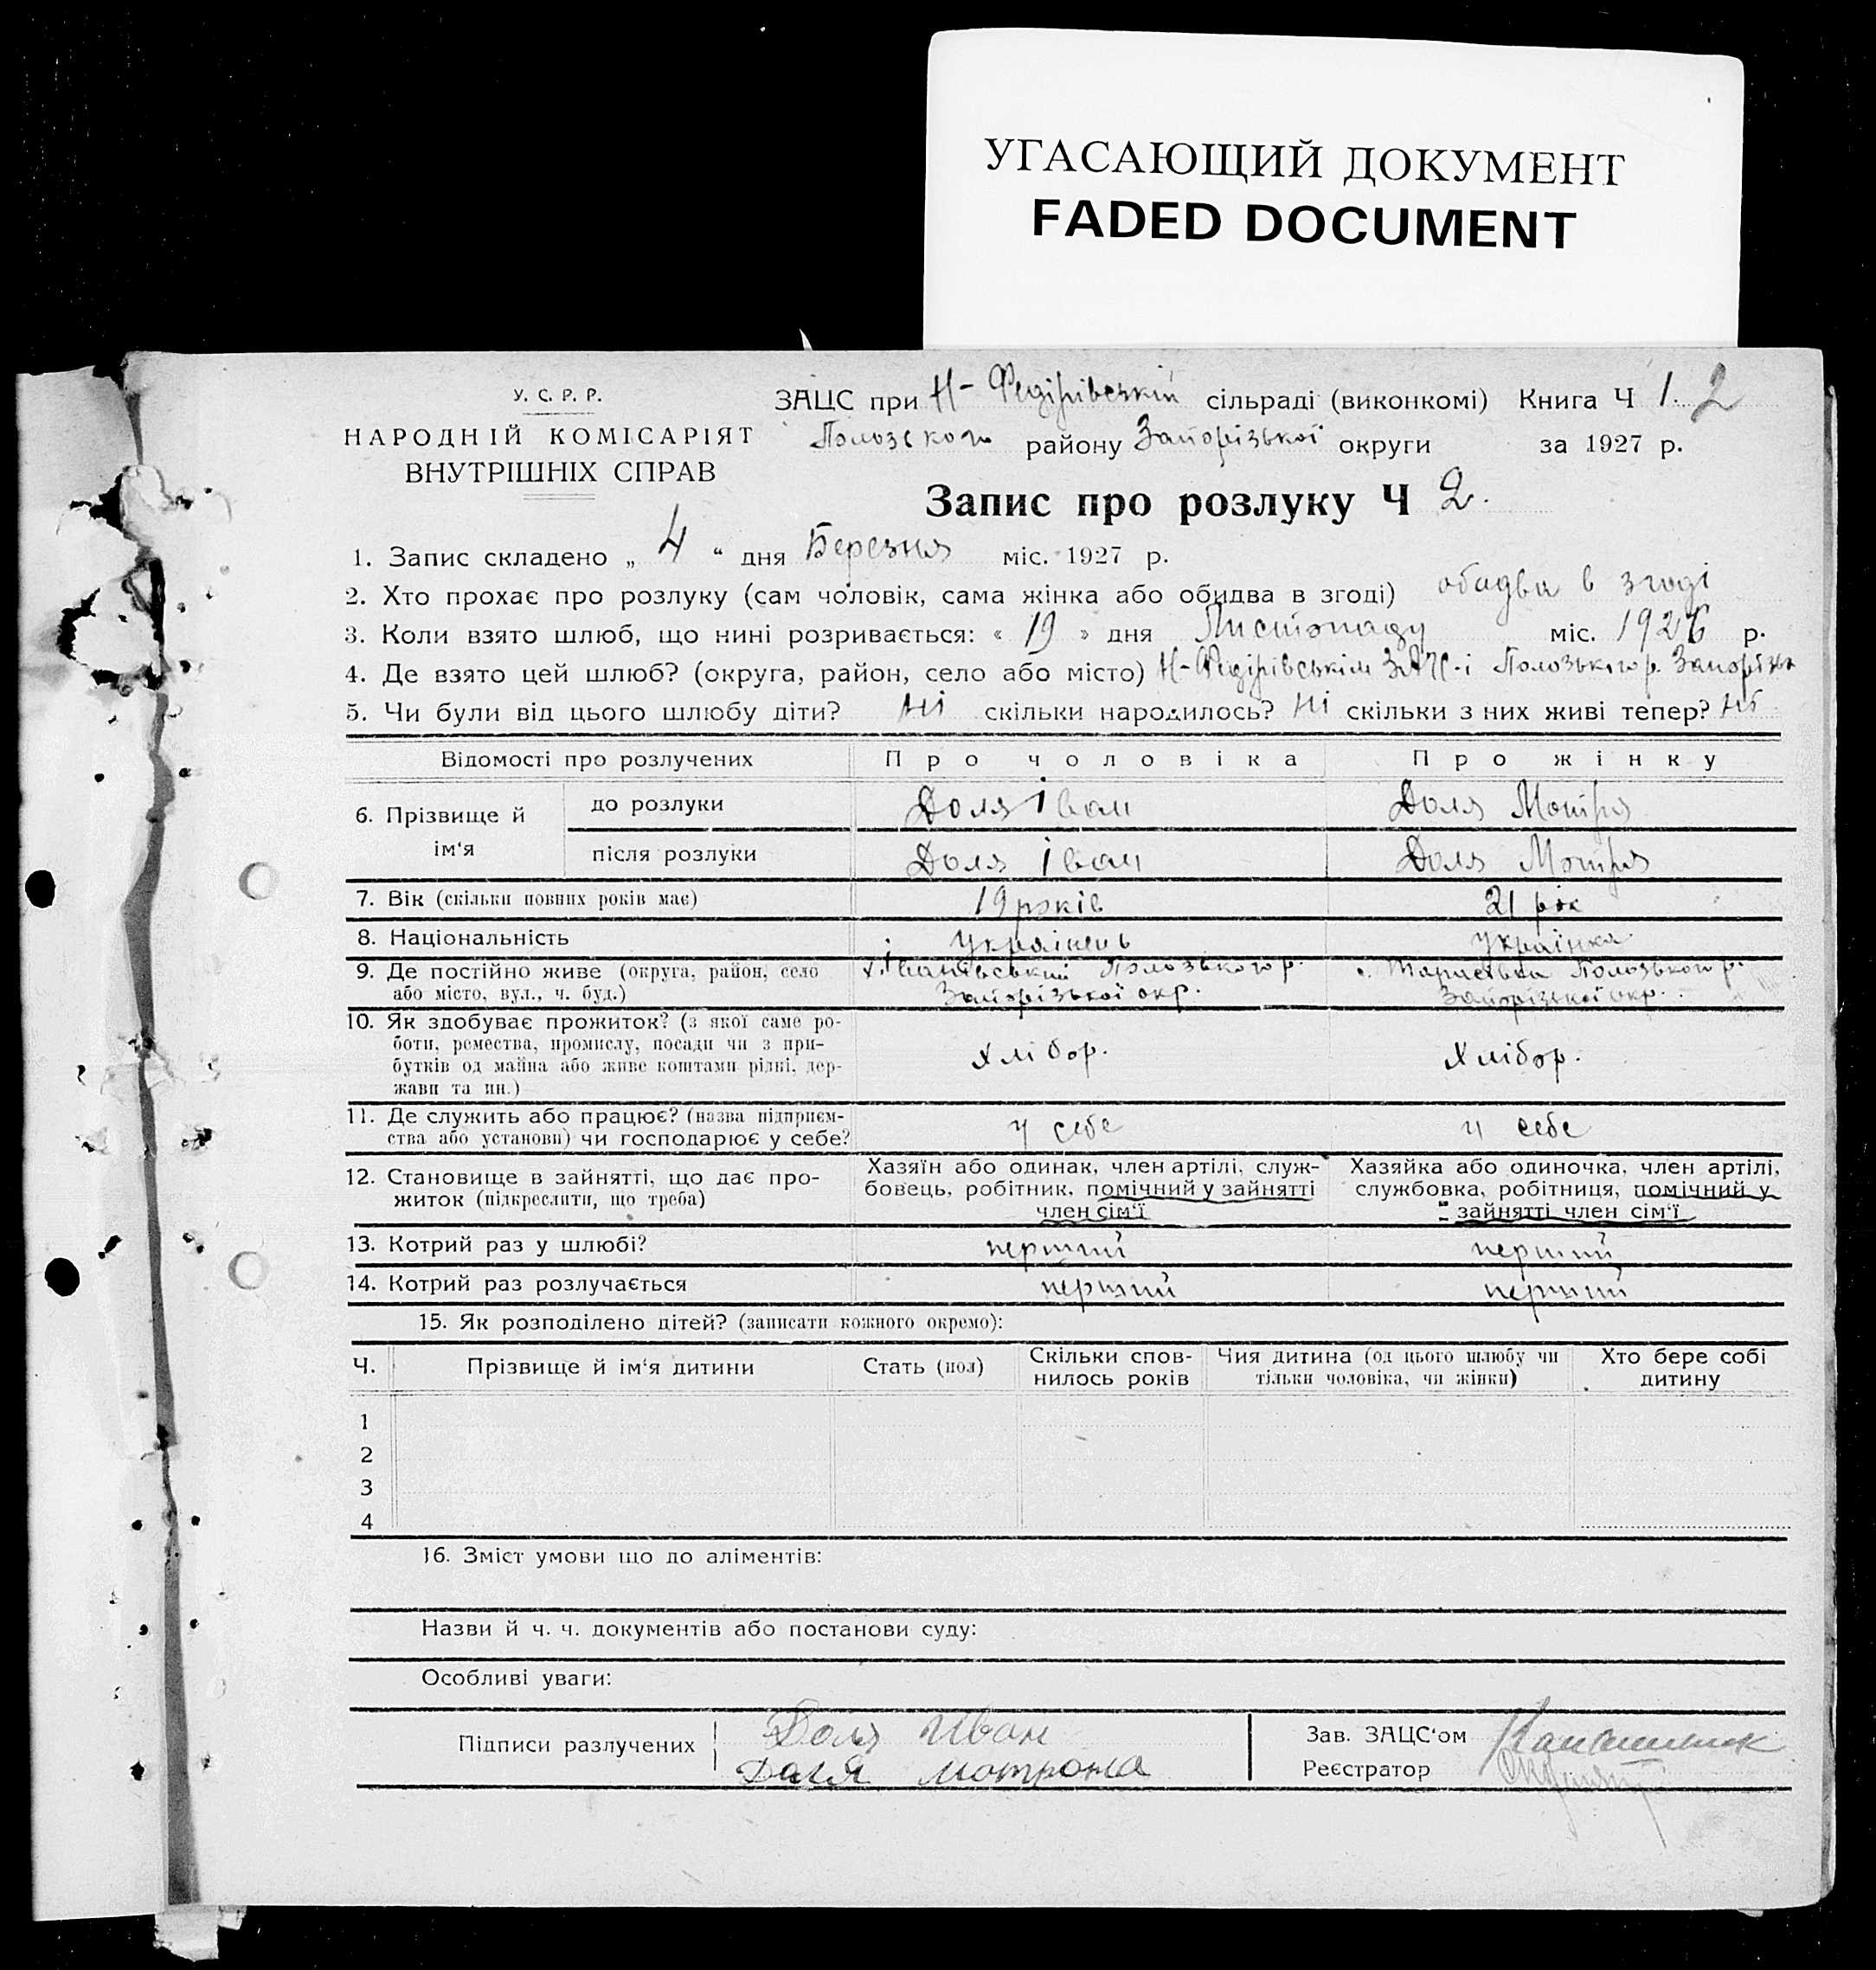 УГАСАЮЩИЙ ДОКУМЕНТ
FADED DOCUMENT
У. С. Р. Р.
НАРОДНІЙ КОМІСАРІЯТ
ВНУТРІШНІХ СПРАВ
ЗАЦС при Н-Федірівській сільраді (виконкомі) Книга Ч 1. 2
Полозского району Запорізької округи за 1927 р.
Запис про розлуку Ч 2.
1. Запис складено „ 4 “ дня Березня міс. 1927 р.
2. Хто прохає про розлуку (сам чоловік, сама жінка або обидва в згоді) обидва в згоді
3. Коли взято шлюб, що нині розривається: « 19 » дня Листопаду міс. 1926 р.
4. Де взято цей шлюб? (округа, район, село або місто) Н-Федірівськім ЗАЦС-і Полозького р. Запорізьк
5. Чи були від цього шлюбу діти? ні скільки народилось? ні скільки з них живі тепер? ні
Відомості про розлучених Про чоловіка Про жінку
6. Прізвище й ім'я
до розлуки Доля Іван Доля Мотря
після розлуки Доля Іван Доля Мотря
7. Вік (скільки повних років має) 19 років 21 рік
8. Національність Українець Українка
9. Де постійно живе (округа, район, село Полозького р. Полозького р.
або місто, вул., ч. буд.) Запорізької окр. Запорізької окр.
10. Як здобуває прожиток? (з якої саме ро-
боти, ремества, промислу, посади чи з при-
бутків од майна або живе коштами рідні, дер-
жави та ин.) Хлібор. Хлібор.
11. Де служить або працює? (назва підприєм-
ства або установи) чи господарює у себе? у себе у себе
12. Становище в зайнятті, що дає про-
житок (підкреслити, що треба)
Хазяїн або одинак, член артілі, служ-
бовець, робітник, помічний у зайнятті
член сім'ї
Хазяйка або одиночка, член артілі,
службовка, робітниця, помічний у
зайнятті член сім'ї
13. Котрий раз у шлюбі? перший перший
14. Котрий раз розлучається перший перший
15. Як розподілено дітей? (записати кожного окремо):
Ч. Прізвище й ім'я дитини Стать (пол) Скільки спов-
нилось років Чия дитина (од цього шлюбу чи
тільки чоловіка, чи жінки) Хто бере собі
дитину
1
2
3
4
16. Зміст умови що до аліментів:
Назви й ч. ч. документів або постанови суду:
Особливі уваги:
Підписи разлучених Доля Иван
Даля Мотрона
Зав. ЗАЦС'ом
Реєстратор